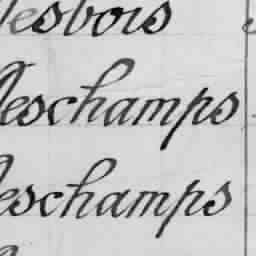 Desbois
Deschamps
Deschamps